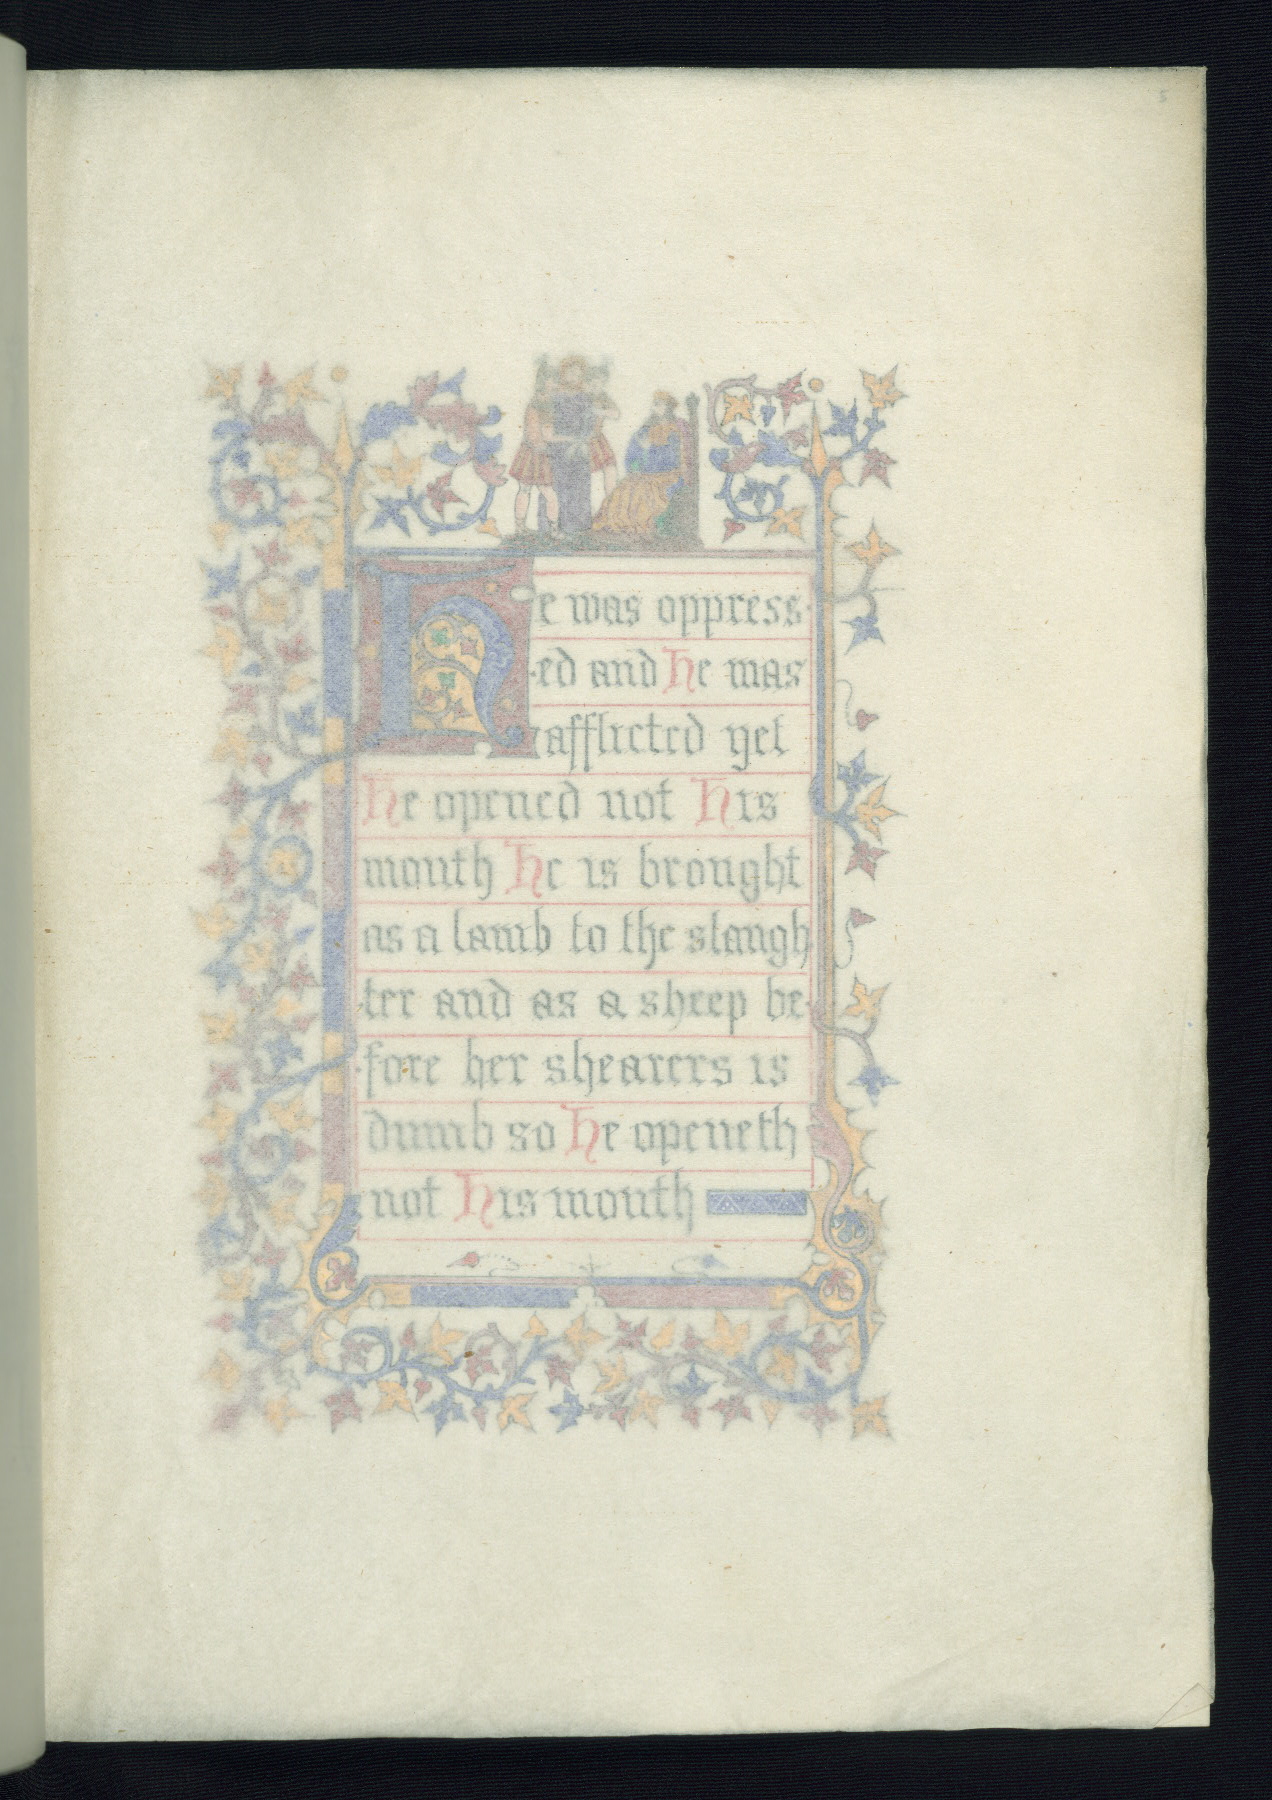 5
He was oppress-
-ed and He was
afflicted yet
He opened not His
mouth He is brought
as a lamb to the slaugh
-ter and as a sheep be-
-fore her shearers is
dumb so He openeth
not His mouth